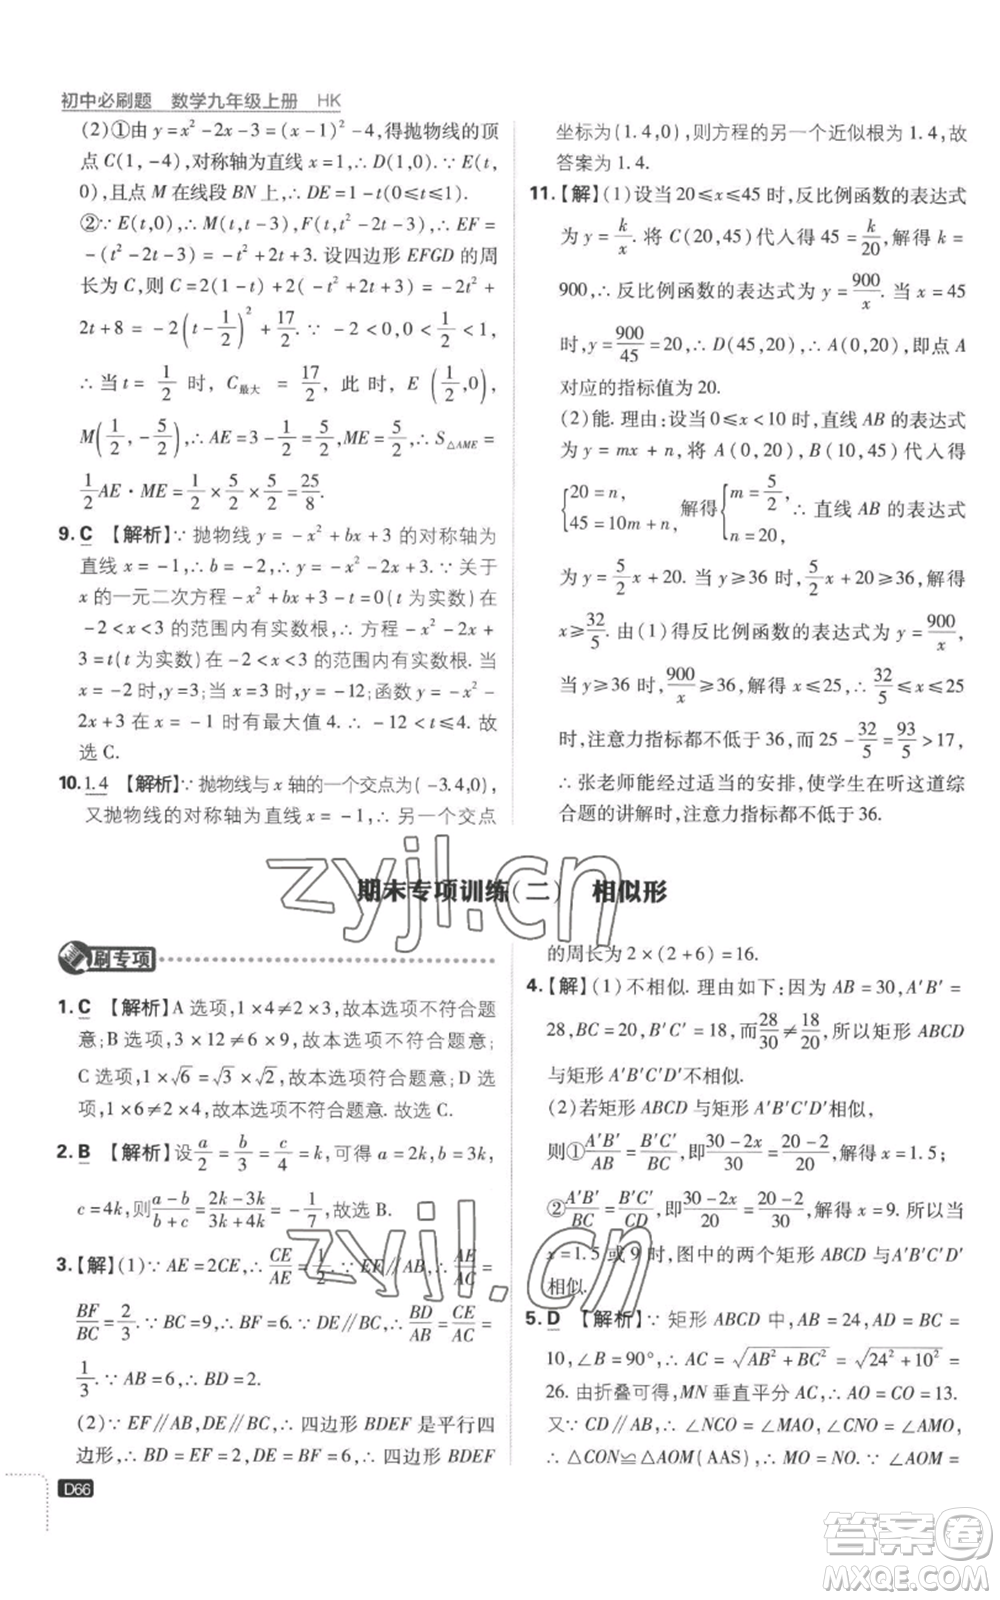 初中必刷题 数学九年级上册 HK
(2)①由 y=x²-2x-3=(x-1)²-4,得抛物线的顶
点 C(1,-4),对称轴为直线 x=1,∴D(1,0).∵E(t,
0),且点 M 在线段 BN 上,∴DE=1-t(0≤t≤1).
②∵E(t,0),∴M(t,t-3),F(t,t²-2t-3).∴EF=
-(t²-2t-3)=-t²+2t+3. 设四边形 EFGD 的周
长为 C,则 C=2(1-t)+2(-t²+2t+3)=-2t²+
2t+8=-2(t-1/2)²+17/2.∵-2<0,0<1/2<1,
∴当 t=1/2 时, C最大=17/2, 此时, E(1/2,0),
M(1/2,-5/2),∴AE=3-1/2=5/2,ME=5/2,∴S△AME=
1/2AE·ME=1/2×5/2×5/2=25/8.
9. C 【解析】∵抛物线 y=-x²+bx+3 的对称轴为
直线 x=-1,∴b=-2,∴y=-x²-2x+3.∵关于
x 的一元二次方程 -x²+bx+3-t=0(t 为实数)在
-2<x<3 的范围内有实数根,∴方程 -x²-2x+
3=t(t 为实数)在 -2<x<3 的范围内有实数根. 当
x=-2 时,y=3;当 x=3 时,y=-12;函数 y=-x²-
2x+3 在 x=-1 时有最大值 4.∴-12<t≤4. 故
选 C.
10. 1.4 【解析】∵抛物线与 x 轴的一个交点为(-3.4,0),
又抛物线的对称轴为直线 x=-1,∴另一个交点
坐标为(1.4,0),则方程的另一个近似根为 1.4,故
答案为 1.4.
11.【解】(1)设当 20≤x≤45 时,反比例函数的表达式
为 y=k/x. 将 C(20,45)代入得 45=k/20,解得 k=
900,∴反比例函数的表达式为 y=900/x. 当 x=45
时,y=900/45=20,∴D(45,20),∴A(0,20),即点 A
对应的指标值为 20.
(2)能. 理由:设当 0≤x<10 时,直线 AB 的表达式
为 y=mx+n,将 A(0,20),B(10,45)代入得
{20=n, 45=10m+n, 解得{m=5/2, n=20, ∴直线 AB 的表达式
为 y=5/2x+20. 当 y≥36 时, 5/2x+20≥36,解得
x≥32/5. 由(1)得反比例函数的表达式为 y=900/x,
当 y≥36 时, 900/x≥36, 解得 x≤25,∴32/5≤x≤25
时,注意力指标都不低于 36,而 25-32/5=93/5>17,
∴张老师能经过适当的安排,使学生在听这道综
合题的讲解时,注意力指标都不低于 36.
期末专项训练(二) 相似形
刷专项
1. C 【解析】A 选项,1×4≠2×3,故本选项不符合题
意;B 选项,3×12≠6×9,故本选项不符合题意;
C 选项,1×√6=√3×√2,故本选项符合题意;D 选
项,1×6≠2×4,故本选项不符合题意. 故选 C.
2. B 【解析】设a/2=b/3=c/4=k,可得 a=2k,b=3k,
c=4k,则(a-b)/(b+c)=(2k-3k)/(3k+4k)=-1/7,故选 B.
3.【解】(1)∵AE=2CE,∴CE/AE=1/2.∵EF∥AB,∴AE/AC=
BF/BC=2/3.∵BC=9,∴BF=6.∵DE∥BC,∴BD/AB=CE/AC=
1/3.∵AB=6,∴BD=2.
(2)∵EF∥AB,DE∥BC,∴四边形 BDEF 是平行四
边形,∴BD=EF=2,DE=BF=6,∴四边形 BDEF
的周长为 2×(2+6)=16.
4.【解】(1)不相似. 理由如下:因为 AB=30,A′B′=
28,BC=20,B′C′=18,而28/30≠18/20,所以矩形 ABCD
与矩形 A′B′C′D′不相似.
(2)若矩形 ABCD 与矩形 A′B′C′D′相似,
则①A′B′/AB=B′C′/BC,即(30-2x)/30=(20-2)/20,解得 x=1.5;
②A′B′/BC=B′C′/CD,即(30-2x)/20=(20-2)/30,解得 x=9. 所以当
x=1.5 或 9 时,图中的两个矩形 ABCD 与 A′B′C′D′
相似.
5. D 【解析】∵矩形 ABCD 中,AB=24,AD=BC=
10,∠B=90°,∴AC=√(AB²+BC²)=√(24²+10²)=
26. 由折叠可得,MN 垂直平分 AC,∴AO=CO=13.
又∵CD∥AB,∴∠NCO=∠MAO,∠CNO=∠AMO,
∴△CON≌△AOM(AAS),∴MO=NO.∵∠AOM=
D66
zyjl.cn
zyjl.cn
答案圈
MXQE.COM